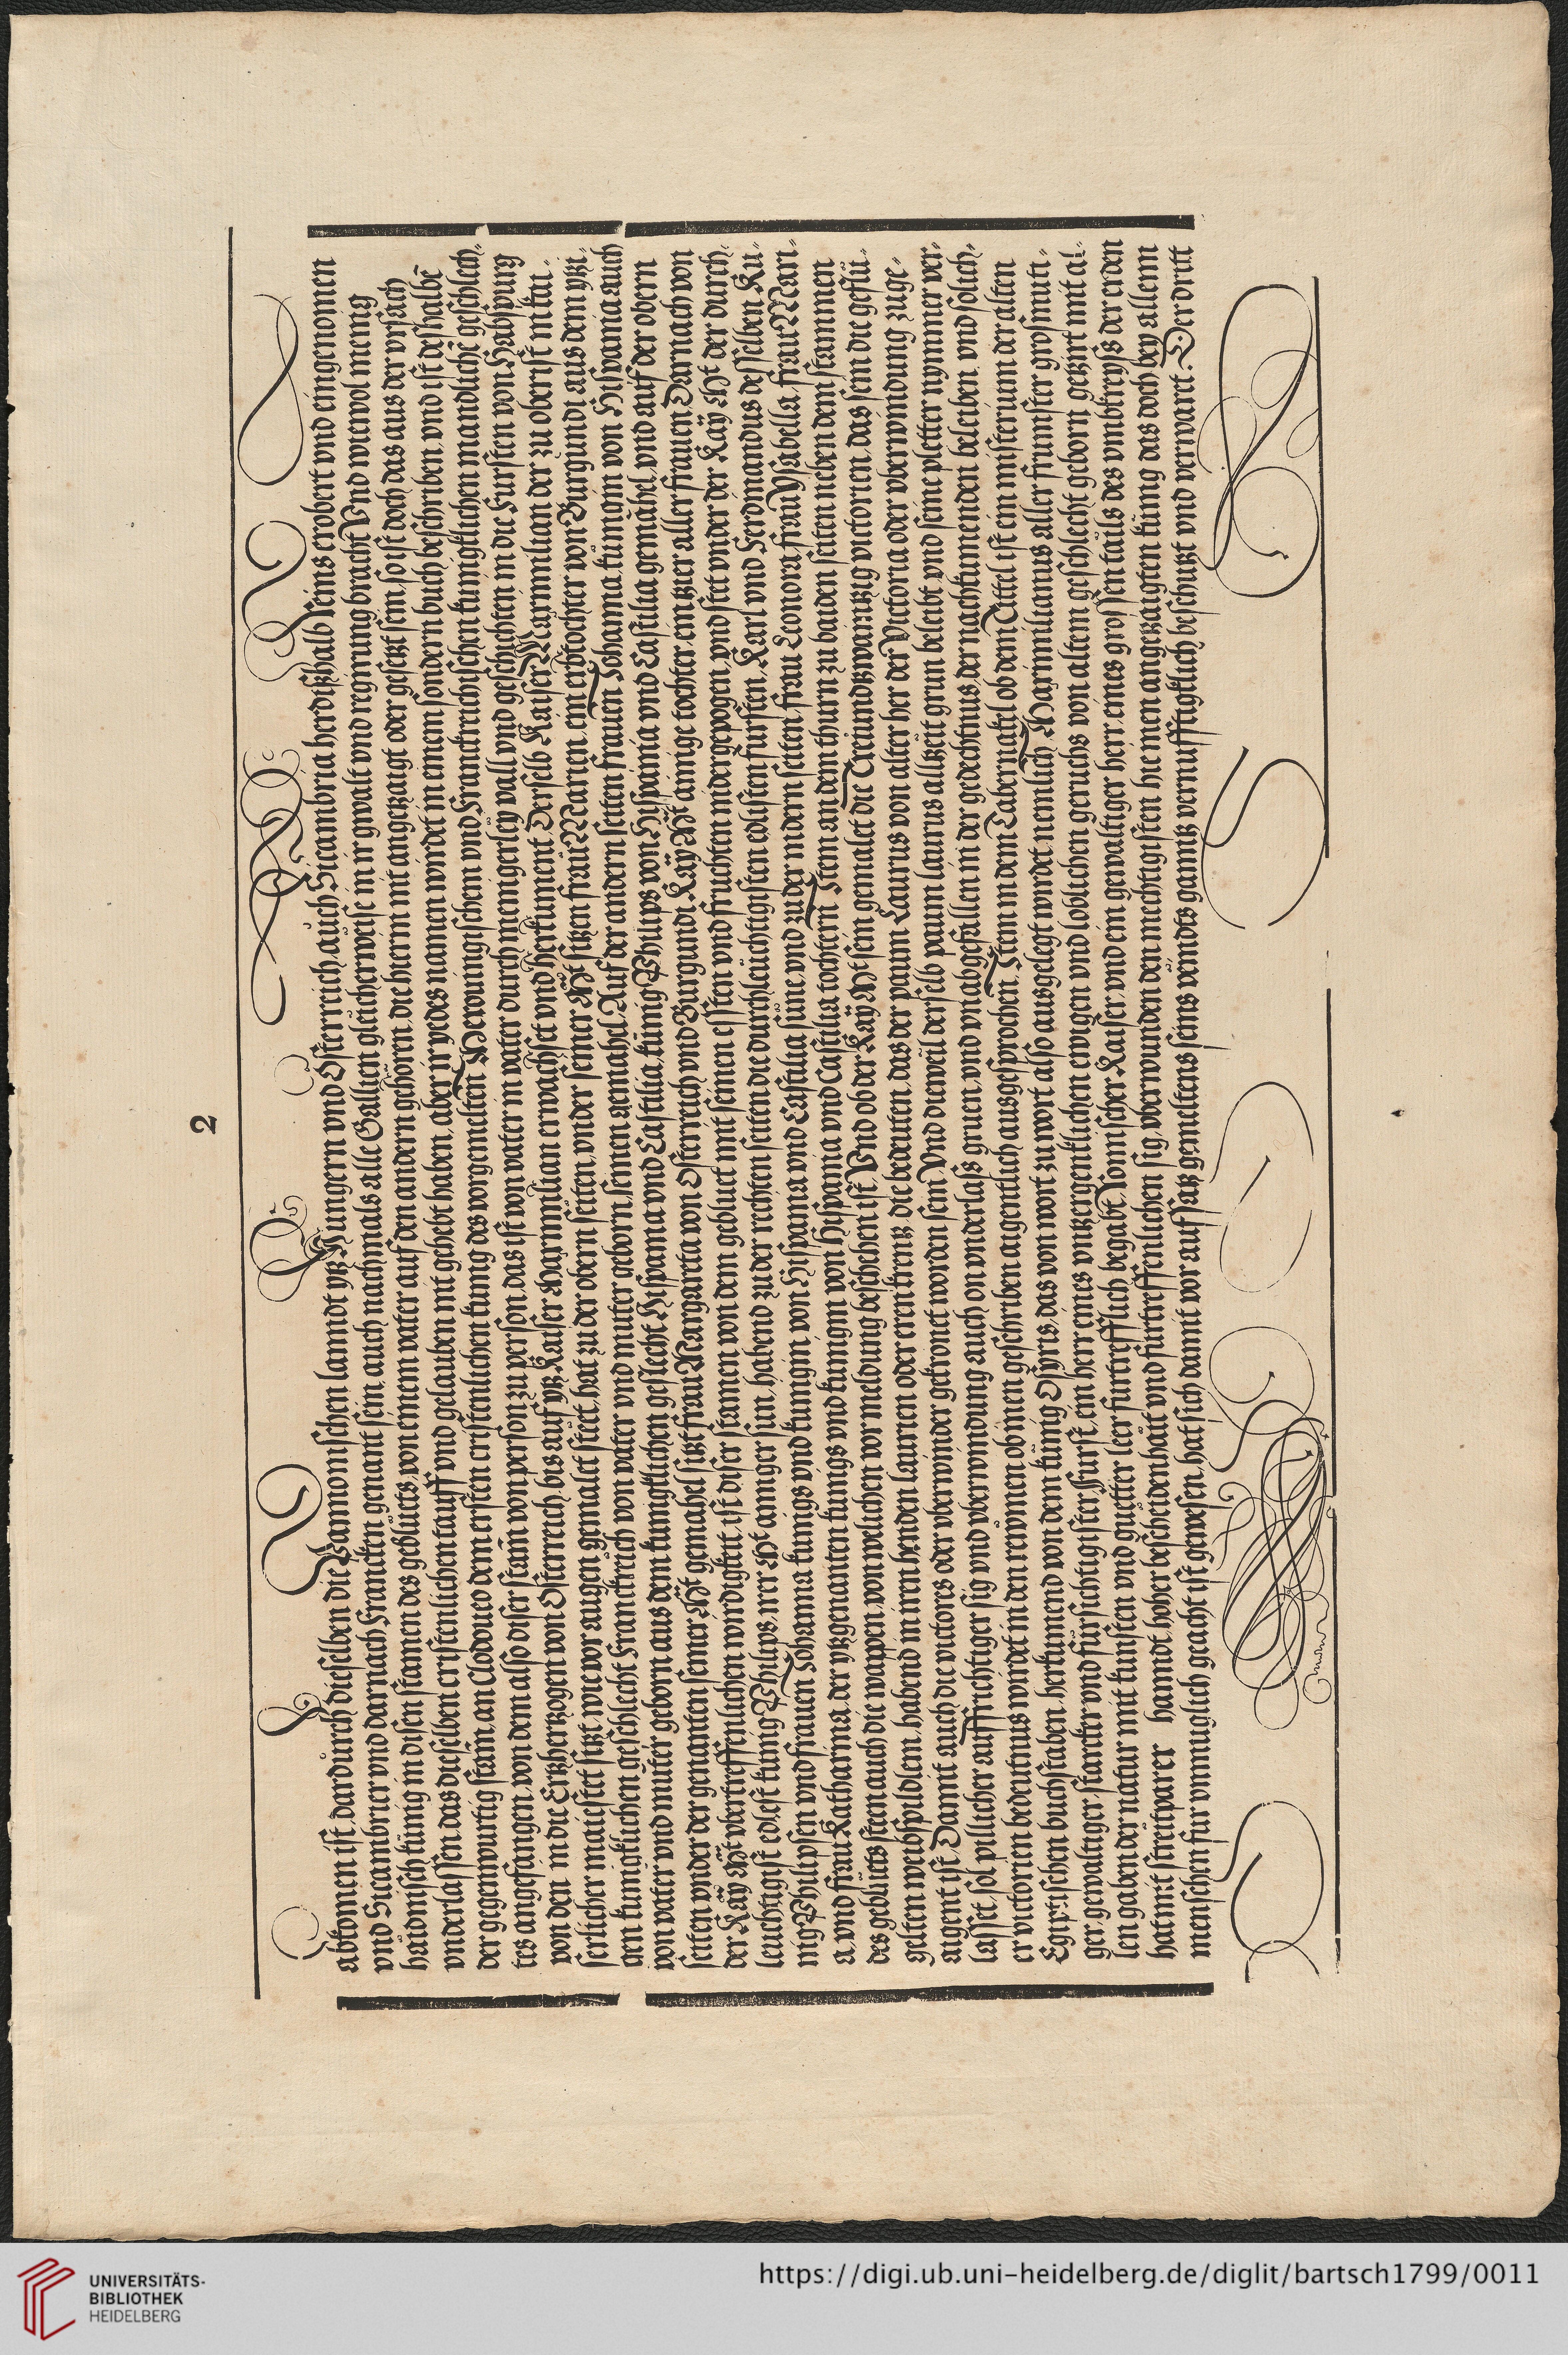 2
abkomen ist, dardurch dieselben die Pannonischen lanndt, ytz Hungern vnd Osterreich, auch Sicambria herdißhalb Reins erobert vnd eingenomen
vnd Sicambrier vnd darnach Francken genant sein, auch nachmals alle Gallien gleicherweise in ir gwalt vnd regirung bracht Vnd wiewol menig
haidnisch künig in disen stamen des geblüets, von einem vater auf den andern gehören, die hierin nit angetzaigt oder gesetzt sein, so ist doch das aus der vrsach
vnderlassen, das dieselben cristenlichen tauff vnd gelauben nit gehebt haben, aber ir yedes namen wirdet in einem sondern buch beschriben, vnd ist deshalbē
der gegenwurtig stam̄, an Clodoueo dem ersten cristenlichen kunig des vorgemelten Merouingischem vnd Franckreichischen kunigklichen mandlichē geschlech-
tes angefangen, von dem also diser stam̄ von person zu person, das ist von vater in vater durch mengerley vall vnd geschichten in die Fursten von Habspurg
von den in die Ertzhertzogen von Osterreich, bis auf ytz Kaiser Maximilian erwachset vnd herkument Derselb Kaiser Maximilian der zu oberist in kai-
serlicher maiestet sitzt, wie vor augen gemalet steet, hat zu der obern seiten, vnder seiner Mt. sitzen frau Marien, ein erbtochter von Burgundi aus dem ytzi-
gen kunigklichen geschlecht Franckreich von vater vnd muter geborn, seinen gemahel, Auf der andern seitten frauen Johanna, kunigin von Hispania auch
von vater vnd muter geborn aus dem kunigklichen geslecht Hispania vnd Castilia, kunig Philips von Hispania vnd Castilia gemahel, vnd auf der obern
seiten vnder der genanten seiner Mt. gemahel sitzt frau Margareta von Osterreich vnd Burgundi, Kay. Mt. ainige tochter, ein tzier aller frauen, Darnach von
der Kay. Mt. vbertreffenlichen wirdigkeit, ist diser stamen von dem gebluet mit seinen essten vnd fruchten nidergepogen, vnd stet vnder der Kay. Mt. der durch-
leuchtigist edlest kunig Philips, irer Mt. ainiger sun, habend zu der rechten seiten die durchleuchtigisten edlisten fursten, Karl vnd Ferdinandus desselben Ku-
nig Philipsen vnd frauen Johanna kunigs vnd kunigin von Hispania vnd Castilia süne, vnd zu der nidern seiten frau Leonora, frau Ysabella, frau Mari-
a, vnd frau Katharina, der ytzgenanten kunigs vnd kunigin von Hispania vnd Castilia tochtern, Item an dem thurn zu baiden seiten neben dem stammen
des gebluets steen auch die wappen, von welichen vor meldung beschehen ist, Vnd ob der Kay. Mt. sein gemalet die Dreiundtzwaintzig victorien, das sein die geflü-
gelten weibspildlein, habend in iren henden laurien oder eren krentz, die bedeuten, das der paum Laurus von alter her der Victoria oder vberwindung zuge-
aigent ist, Damit auch die victores oder vberwinder gekronet worden sein Vnd dieweil derselb paum laurus altzeit grun beleibt vnd seine pletter nymmer ver-
lasset, sol pillicher auffrichtiger sig vnd vberwindung auch on vnderlaß gruen, vnd vnabgefallen in der gedechtnus der nachkumenden beleiben, vnd solich-
er victorien bedeutnus wirdet in den reiomen ob inen geschriben aigentlich ausgesprochen, Item in dem Tabernakl ob dem Tittel ist ein misterium der alten
Egiptischen buchstaben, herkumend von dem künig Osyris, das von wort zu wort also ausgelegt wirdet nemlich, Maximilianus aller frumister großmuti-
ger, gewaltiger, starcker vnd fursichtigister Furst, ein herr eines vntzergenklichen ewigen vnd loblichen geruchs von altem geschlecht geborn getzirt mit al-
len gaben der natur mit kunsten vnd guetter leer furtrefflich begabt, Romischer Kaiser, vnd ein gewaltiger herr, eines grossen tails des vmbkreyß der erden
hat mit streitparer hanndt, hoher bescheidenhait vnd furtreffenlichen sig, vberwunden den mechtigisten hie inen angetzaigten kunig das doch bey allenn
menschen fur vnmuglich geacht ist gewesen, hat sich damit vor aufsatz gemeltens seins veindts ganntz vernufftigklich beschutzt vnd verwaret. Der dritt
UNIVERSITÄTS-
BIBLIOTHEK
HEIDELBERG
https://digi.ub.uni-heidelberg.de/diglit/bartsch1799/0011